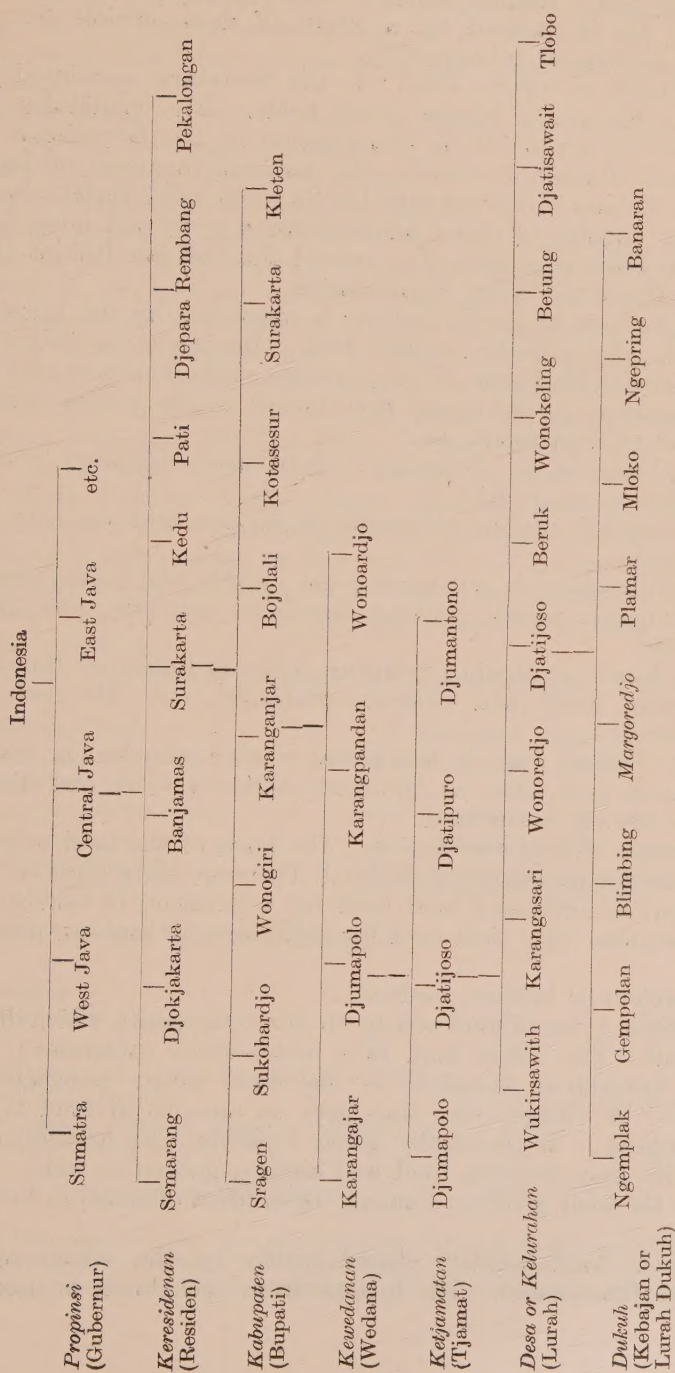 Indonesia
Propinsi
(Gubernur)
Sumatra West Java Central Java East Java etc.
Keresidenan
(Residen)
Semarang Djokjakarta Banjamas Surakarta Kedu Pati Djepara Rembang Pekalongan
Kabupaten
(Bupati)
Sragen Sukohardjo Wonogiri Karanganjar Bojolali Kotasesur Surakarta Kleten
Kewedanan
(Wedana)
Karangajar Djumapolo Karangpandan Wonoardjo
Ketjamatan
(Tjamat)
Djumapolo Djatijoso Djatipuro Djumantono
Desa or Kelurahan
(Lurah)
Wukirsawith Karangasari Wonoredjo Djatijoso Beruk Wonokeling Betung Djatisawait Tlobo
Dukuh
(Kebajan or
Lurah Dukuh)
Ngemplak Gempolan Blimbing Margoredjo Plamar Mloko Ngepring Banaran